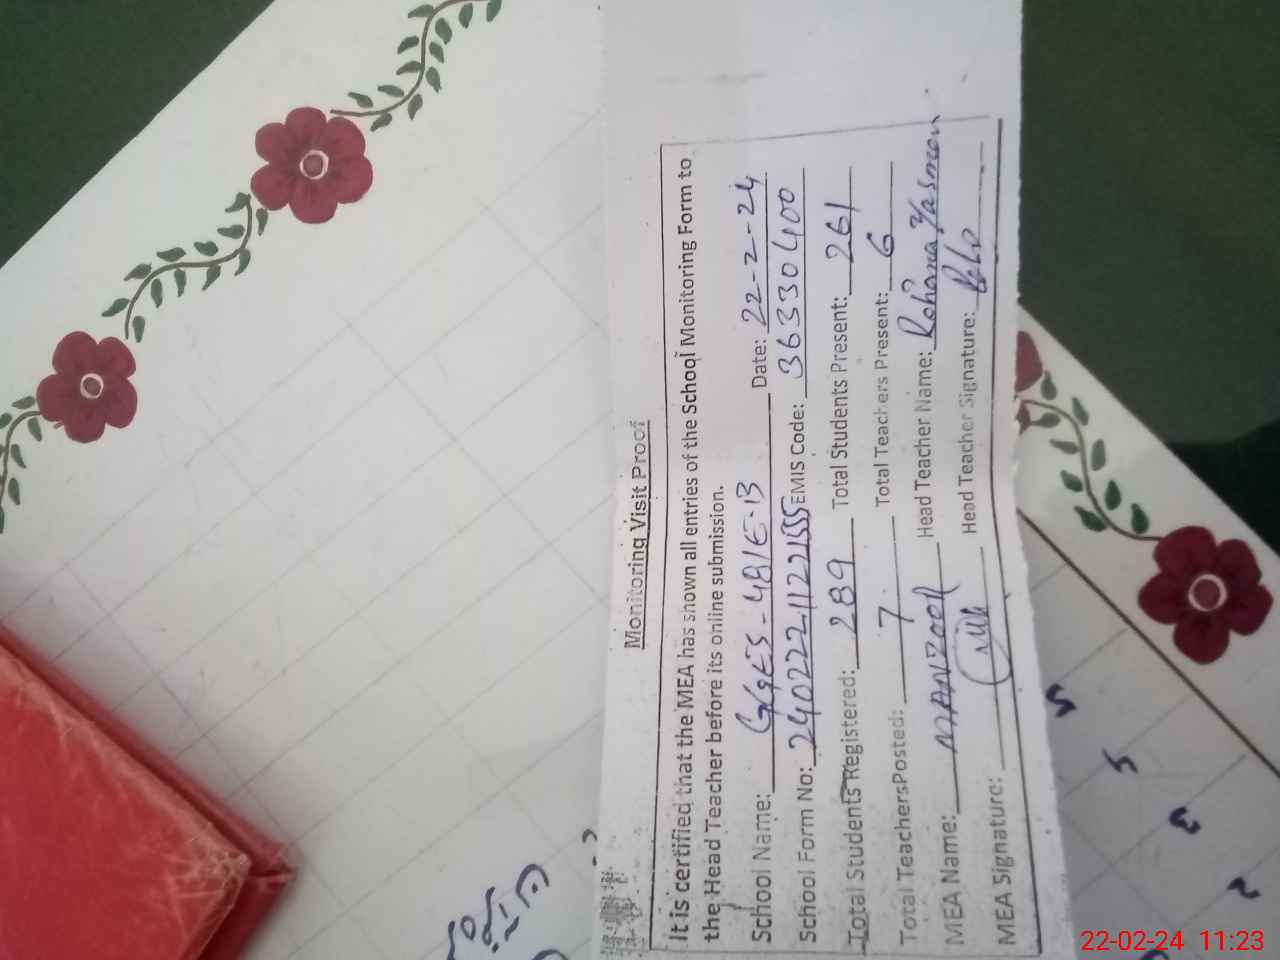 Monitoring Visit Proof
It is certified that the MEA has shown all entries of the School Monitoring Form to
the Head Teacher before its online submission.
School Name: GGES-481E-B Date: 22-2-24
School Form No: 24022211221555 EMIS Code: 36330400
Total Students Registered: 289 Total Students Present: 261
Total TeachersPosted: 7 Total Teachers Present: 6
MEA Name: MANZOOR Head Teacher Name: Rehana Yasmeen
MEA Signature: Head Teacher Signature:
5
5
3
2
22-02-24 11:23